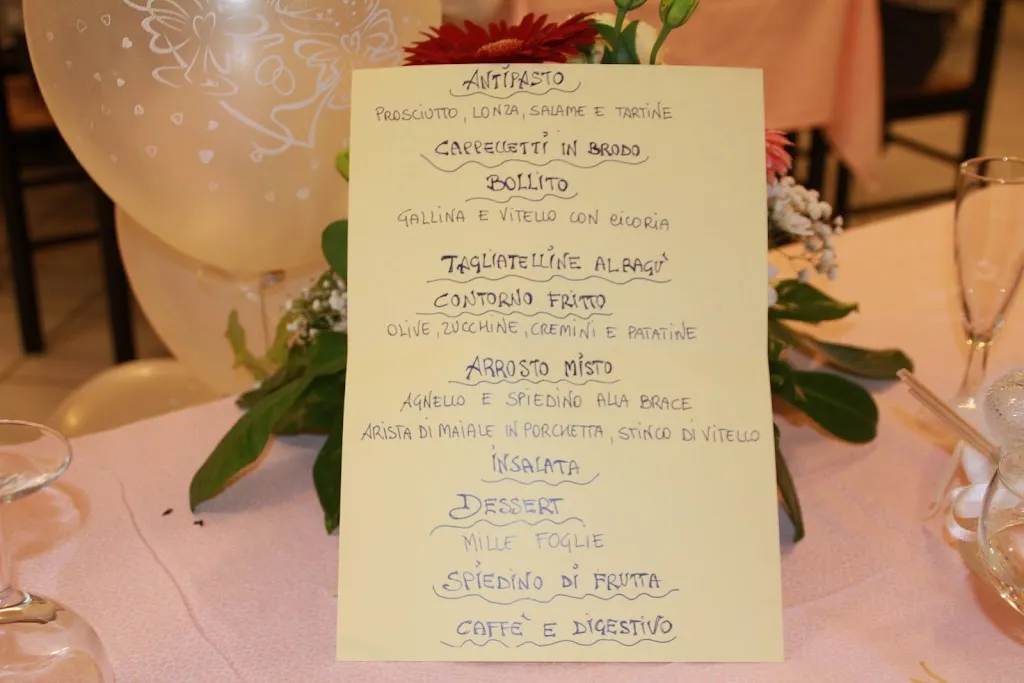 ANTIPASTO
PROSCIUTTO, LONZA, SALAME E TARTINE
CAPPELLETTI IN BRODO
BOLLITO
GALLINA E VITELLO CON CICORIA
TAGLIATELLINE AL RAGU'
CONTORNO FRITTO
OLIVE, ZUCCHINE, CREMINI E PATATINE
ARROSTO MISTO
AGNELLO E SPIEDINO ALLA BRACE
ARISTA DI MAIALE IN PORCHETTA, STINCO DI VITELLO
INSALATA
DESSERT
MILLE FOGLIE
SPIEDINO DI FRUTTA
CAFFE' E DIGESTIVO